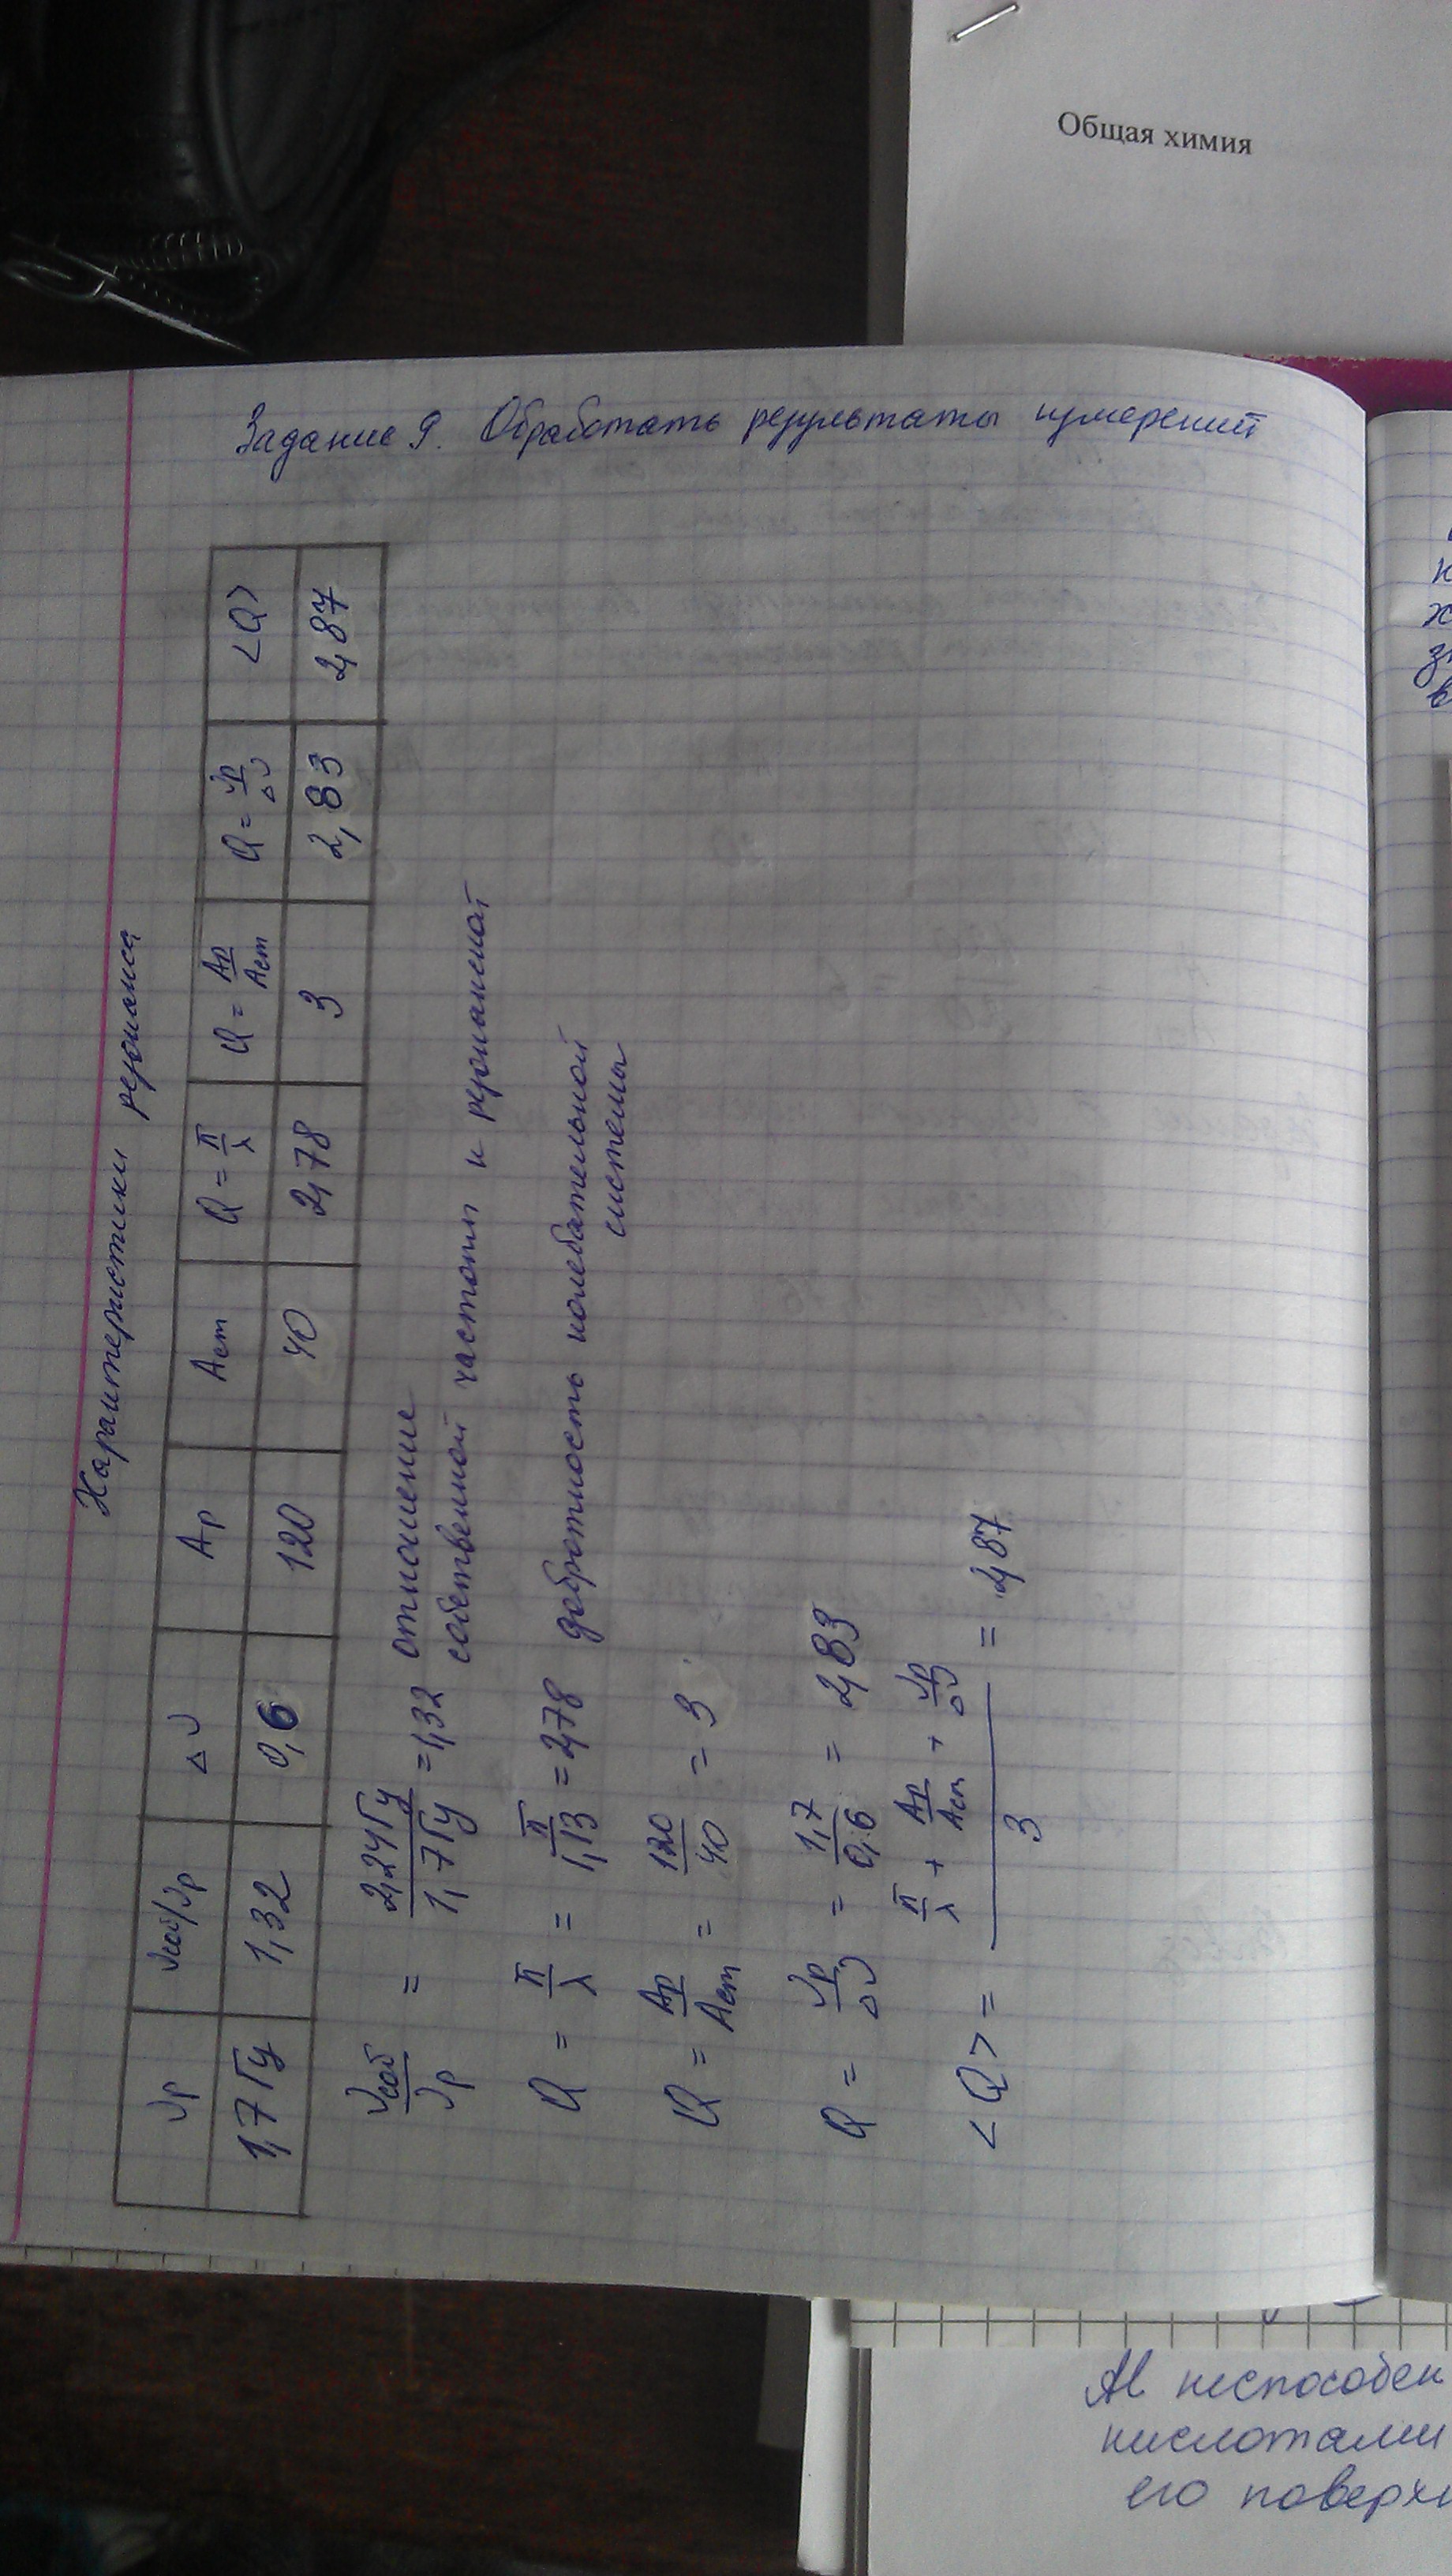 Общая химия
Задание 9. Обработать результаты измерений
Характеристики резонанса
νр | νсоб/νр | Δν | Aр | Aст | Q = π/λ | Q = Aр/Aст | Q = νр/Δν | <Q>
1,7 Гц | 1,32 | 0,6 | 120 | 40 | 2,78 | 3 | 2,83 | 2,87
νсоб/νр = 2,24Гц/1,7Гц = 1,32 отношение
собственной частоты к резонансной
Q = π/λ = π/1,13 = 2,78 добротность колебательной
системы
Q = Aр/Aст = 120/40 = 3
Q = νр/Δν = 1,7/0,6 = 2,83
<Q> = (π/λ + Aр/Aст + νр/Δν)/3 = 2,87
Al неспособен
кислотами
его